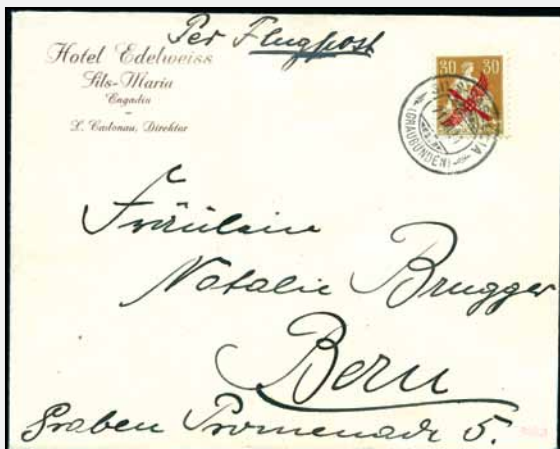 Per Flugpost
Hotel Edelweiss
Sils-Maria
Engadin
L. Cadonau, Direktor
30 30
(GRAUBÜNDEN)
Fräulein
Natalie Brugger
Bern
Graben Promenade 5.